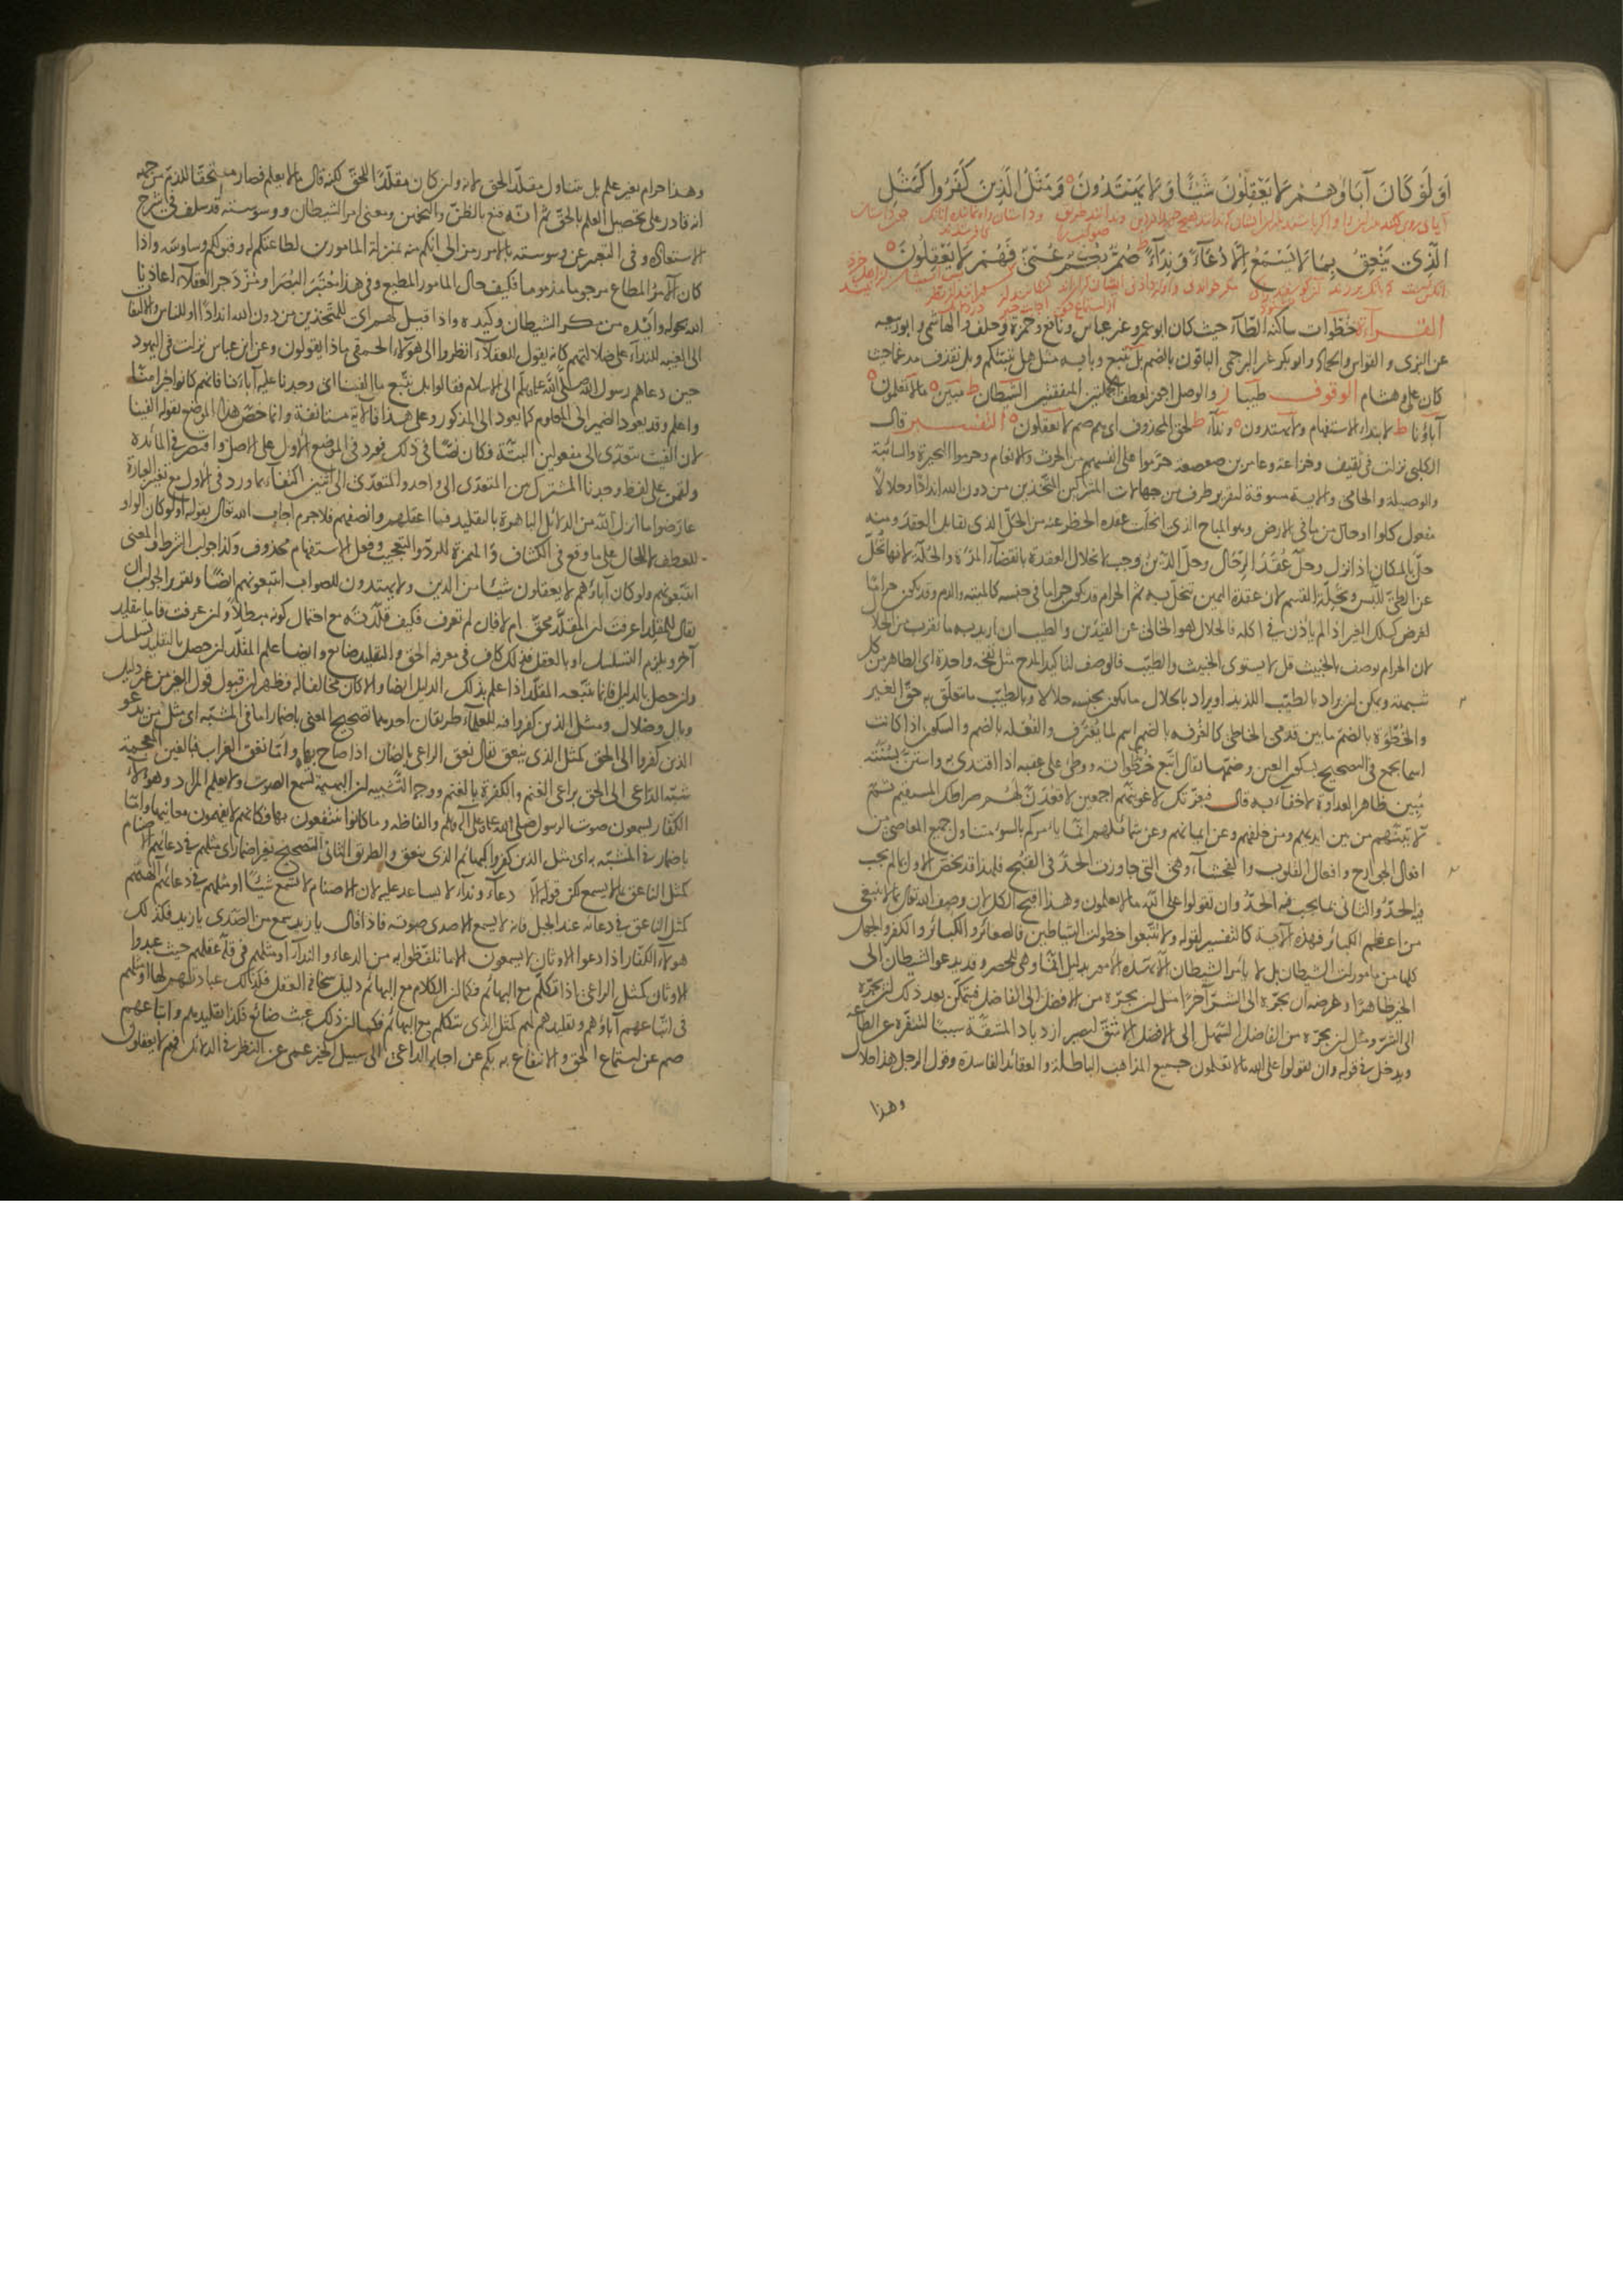 اَوَلَو كَانَ آبَاؤهُمْ لا يَعْقِلُونَ شَيْئًا وَلا يَهْتَدُونَ وَمَثَلُ الَّذِينَ كَفَرُوا كَمَثَلِ
الَّذِي يَنْعِقُ بِمَا لا يَسْمَعُ اِلَّا دُعَآءً وَنِدَآءً ط صُمٌّ بُكْمٌ عُمْيٌ فَهُمْ لا يَعْقِلُونَ
القراءة خُطْوات ساكنة الطاء حيث كان ابو عمرو غير عباس ونافع وحمزة وخلف والهاشمي وابو ربيعة
عن البزي و القواس والحماد وابو بكر غير البرجمي الباقون بالضم بل نتبع وبابه مثل هل ننبئكم وبل نقذف مدغما حيث
كان علي وهشام الوقوف طيبا ز والوصل اجوز لعطف الجملتين المتفقتين الشيطان ط مبين ه مالا تعلمون ه
آباؤنا ط لابتداء الاستفهام ولا يهتدون ه ونداء ط لحق المحذوف اي هم صم لا يعقلون ه التفسير قال
الكلبي نزلت في ثقيف وخزاعة وعامر بن صعصعة حرموا على انفسهم من الحرث والانعام وحرموا البحيرة والسائبة
والوصيلة والحامي والاية مسوقة لتقرير طرف من جهالات المشركين المتخذين من دون الله اندادا وحلالا
مفعول كلوا او حال من ما في الارض وهو المباح الذي انحلت عقدة الحظر عنه من الحل الذي يقابل العقد ومنه
حل بالمكان اذا نزل وحل عقد الرحال وحل الدين وجب لانحلال العقدة بانقضاء المدة والحلة لانها تحل
عن الطي للبس وتحلة القسم لان عقدة اليمين تنحل به ثم الحرام قد يكون حراما في جنسه كالميتة والدم وقد يكون حراما
لعرض كملك الغير اذا لم يأذن في اكله فالحلال هو الخالي عن القيدين والطيب ان اريد به ما يقرب من الحلال
لان الحرام يوصف بالخبيث قل لا يستوي الخبيث والطيب فالوصف لتاكيد المدح مثل نفخة واحدة اي الطاهر من كل
شبهة ويمكن ان يراد بالطيب اللذيذ او يراد بالحلال ما يكون بجنسه حلالا وبالطيب ما لا يتعلق به حق الغير
والخطوة بالضم ما بين قدمي الخاطي كالغرفة بالضم اسم لما يغترف والفعلة بالضم والسكون اذا كانت
اسما يجمع في الصحيح بسكون العين وضمها يقال اتبع خطواته ووطئ على عقبه اذا اقتدى به واستن بسنته
مبين ظاهر العداوة لا خفاء به قال فبعزتك لاغوينهم اجمعين لاقعدن لهم صراطك المستقيم ثم
لآتينهم من بين ايديهم ومن خلفهم وعن ايمانهم وعن شمائلهم انما يأمركم بالسوء متناول جميع المعاصي من
افعال الجوارح وافعال القلوب والفحشاء وهي التي جاوزت الحد في القبح فلهذا قد تخص الاول بما لم يجب
فيه الحد والثاني بما يجب فيه الحد وان تقولوا على الله مالا تعلمون وهذا اقبح الكل لان وصف الله تعالى بما لا ينبغي
من اعظم الكبائر فهذه الآية كالتفسير لقوله ولا تتبعوا خطوات الشياطين فالصغائر والكبائر والكفر والجهل
كلها من مأمورات الشيطان بل لا يأمر الشيطان الا بهذه الامور بدليل انما وهي للحصر وقد يدعو الشيطان الى
الخير ظاهرا وغرضه ان يجره الى الشر آخرا مثل ان يجره من الافضل الى الفاضل فيتمكن بعد ذلك ان يجره
الى الشر ومثل ان يجره من الفاضل السهل الى الافضل الاشق ليصير ازدياد المشقة سببا لتنفره عن الطاعة
ويدخل في قوله وان تقولوا على الله مالا تعلمون جميع المذاهب الباطلة والعقائد الفاسدة وقول الرجل هذا حلال
وهذا
وهذا حرام بغير علم بل يتناول مقلد الحق لانه وان كان مقلدا للحق لكنه قال مالا يعلم فصار مستحقا للذم من جهة
انه قادر على تحصيل العلم بالحق ثم انه قنع بالظن والتخمين ومعنى امر الشيطان ووسوسته قد سلف في شرح
الاستعاذة وفي التعبير عن وسوسته بالامر رمز الى انكم منه بمنزلة المامورين لطاعتكم له وقبولكم وساوسه واذا
كان الآمر المطاع مرجوما مذموما فكيف حال المامور المطيع وفي هذا معتبر البصراء ومزدجر العقلاء اعاذنا
الله بحوله وأيده من مكر الشيطان وكيده واذا قيل لهم اي للمتخذين من دون الله اندادا او للناس والتفات
الى الغيبة للنداء على ضلالتهم كانه يقول للعقلاء انظروا الى هؤلاء الحمقى ماذا يقولون وعن ابن عباس نزلت في اليهود
حين دعاهم رسول الله صلى الله عليه وسلم الى الاسلام فقالوا بل نتبع ما الفينا اي وجدنا عليه آباءنا فانهم كانوا خيرا منا
واعلم وقد يعود الضمير الى المعلوم كما يعود الى المذكور وعلى هذا فالآية مستانفة وانما خص هذا الموضع بقوله الفينا
لان الفيت يتعدى الى مفعولين البتة فكان نصا في ذلك فورد في الموضع الاول على الاصل واقتصر في المائدة
ولقمن على لفظ وجدنا المشترك بين المتعدي الى واحد والمتعدي الى اثنين اكتفاء بما ورد في الاول مع تغيير العبارة
عارضوا ما انزل الله من الدلائل الباهرة بالتقليد فما اعقلهم وانصفهم فلا جرم اجاب الله تعالى بقوله أولو كان الواو
للعطف لا للحال على ما وقع في الكشاف والهمزة للرد والتعجيب وفعل الاستفهام محذوف وكذا جواب الشرط والمعنى
ايتبعونهم ولو كان آباؤهم لا يعقلون شيئا من الدين ولا يهتدون للصواب اتبعونهم ايضا وتقرير الجواب ان
يقال للمقلد اعرفت ان المقلد محق ام لا فان لم تعرف فكيف قلدته مع احتمال كونه مبطلا وان عرفت فاما بتقليد
آخر ويلزم التسلسل او بالعقل فذلك كاف في معرفة الحق والتقليد ضائع وايضا علم المقلد ان حصل بالتقليد تسلسل
وان حصل بالدليل فانما تتبعه المقلد اذا علم بذلك الدليل ايضا والا كان مخالفا له فظهر ان قبول قول الغير من غير دليل
وبال وضلال ومثل الذين كفروا فيه للعلماء طريقان احدهما تصحيح المعنى باضمار اما في المشبه اي مثل من يدعو
الذين كفروا الى الحق كمثل الذي ينعق يقال نعق الراعي بالضان اذا صاح بها واما نغق الغراب فبالغين المعجمة
شبه الداعي الى الحق براعي الغنم والكفرة بالغنم ووجه التشبيه ان البهيمة تسمع الصوت ولا تعلم المراد وهؤلاء
الكفار يسمعون صوت الرسول صلى الله عليه وعلى آله وسلم والفاظه وما كانوا ينتفعون بها فكانهم لا يفهمون معانيها واما
باضمار في المشبه به اي مثل الذين كفروا كبهائم الذي ينعق والطريق الثاني التصحيح بغير اضمار اي مثلهم في دعائهم الاصنام
كمثل الناعق بما لا يسمع لكن قوله الا دعاء ونداء لا يساعد عليه لان الاصنام لا تسمع شيئا او مثلهم في دعائهم آلهتهم
كمثل الناعق في دعائه عند الجبل فانه لا يسمع الا صدى صوته فاذا قال يا زيد يسمع من الصدى يا زيد فكذلك
هؤلاء الكفار اذا دعوا الاوثان لا يسمعون الا ما تلفظوا به من الدعاء والنداء او مثلهم في قلة عقلهم حيث عبدوا
الاوثان كمثل الراعي اذا تكلم مع البهائم فكما ان الكلام مع البهائم دليل سخافة العقل فكذلك عبادتهم لها او مثلهم
في اتباعهم آباؤهم وتقليدهم لهم كمثل الذي يتكلم مع البهائم فكما ان ذلك عبث ضائع فكذا تقليدهم واتباعهم
صم عن استماع الحق والانتفاع به بكم عن اجابة الداعي الى سبيل الخير عمي عن النظر في الدلائل فهم لا يعقلون